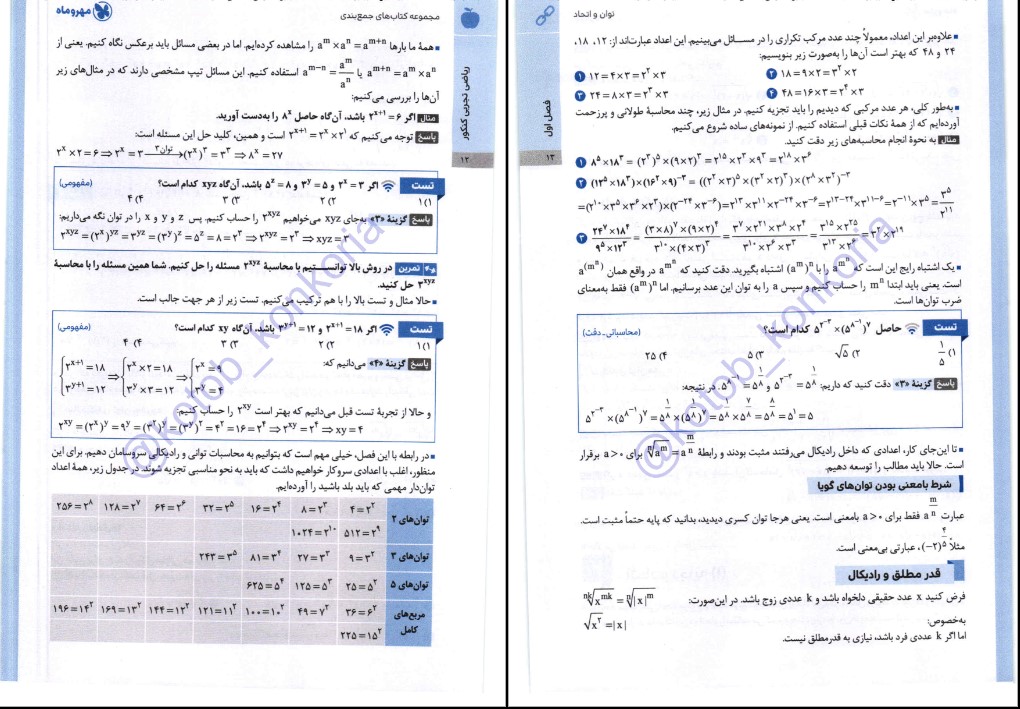 مجموعه کتاب‌های جمع‌بندی
مهروماه
ریاضی تجربی کنکور
۱۲
همهٔ ما بارها aᵐ×aⁿ=aᵐ⁺ⁿ را مشاهده کرده‌ایم. اما در بعضی مسائل باید برعکس نگاه کنیم. یعنی از
aᵐ⁺ⁿ=aᵐ×aⁿ یا aᵐ⁻ⁿ=aᵐ/aⁿ استفاده کنیم. این مسائل تیپ مشخصی دارند که در مثال‌های زیر
آن‌ها را بررسی می‌کنیم:
مثال اگر ۲ˣ⁺¹=۶ باشد، آن‌گاه حاصل ۸ˣ را به‌دست آورید.
پاسخ توجه می‌کنیم که ۲ˣ⁺¹=۲ˣ×۲¹ است و همین، کلید حل این مسئله است:
۲ˣ×۲=۶⇒۲ˣ=۳ —توان۳→ (۲ˣ)³=۳³⇒۸ˣ=۲۷
تست اگر ۲ˣ=۳ و ۳ʸ=۵ و ۵ᶻ=۸ باشد، آن‌گاه xyz کدام است؟ (مفهومی)
۱) ۱ ۲) ۲ ۳) ۳ ۴) ۴
پاسخ گزینهٔ «۳» به‌جای xyz می‌خواهیم ۲^(xyz) را حساب کنیم. پس z و y و x را در توان نگه می‌داریم:
۲^(xyz)=(۲ˣ)^(yz)=۳^(yz)=(۳ʸ)ᶻ=۵ᶻ=۸=۲³⇒۲^(xyz)=۲³⇒xyz=۳
تمرین در روش بالا توانستیم با محاسبهٔ ۲^(xyz) مسئله را حل کنیم. شما همین مسئله را با محاسبهٔ
۳^(xyz) حل کنید.
حالا مثال و تست بالا را با هم ترکیب می‌کنیم. تست زیر از هر جهت جالب است.
تست اگر ۲ˣ⁺¹=۱۸ و ۳ʸ⁺¹=۱۲ باشد، آن‌گاه xy کدام است؟ (مفهومی)
۱) ۱ ۲) ۲ ۳) ۳ ۴) ۴
پاسخ گزینهٔ «۴» می‌دانیم که:
{۲ˣ⁺¹=۱۸ ⇒ {۲ˣ×۲=۱۸ ⇒ {۲ˣ=۹
{۳ʸ⁺¹=۱۲ ⇒ {۳ʸ×۳=۱۲ ⇒ {۳ʸ=۴
و حالا از تجربهٔ تست قبل می‌دانیم که بهتر است ۲^(xy) را حساب کنیم:
۲^(xy)=(۲ˣ)ʸ=۹ʸ=(۳²)ʸ=(۳ʸ)²=۴²=۱۶=۲⁴⇒۲^(xy)=۲⁴⇒xy=۴
در رابطه با این فصل، خیلی مهم است که بتوانیم به محاسبات توانی و رادیکالی سروسامان دهیم. برای این
منظور، اغلب با اعدادی سروکار خواهیم داشت که باید به نحو مناسبی تجزیه شوند. در جدول زیر، همهٔ اعداد
توان‌دار مهمی که باید بلد باشید را آورده‌ایم.
توان‌های ۲ ۴=۲² ۸=۲³ ۱۶=۲⁴ ۳۲=۲⁵ ۶۴=۲⁶ ۱۲۸=۲⁷ ۲۵۶=۲⁸
۵۱۲=۲⁹ ۱۰۲۴=۲¹⁰
توان‌های ۳ ۹=۳² ۲۷=۳³ ۸۱=۳⁴ ۲۴۳=۳⁵
توان‌های ۵ ۲۵=۵² ۱۲۵=۵³ ۶۲۵=۵⁴
مربع‌های کامل ۳۶=۶² ۴۹=۷² ۱۰۰=۱۰² ۱۲۱=۱۱² ۱۴۴=۱۲² ۱۶۹=۱۳² ۱۹۶=۱۴²
۲۲۵=۱۵²
@kotob_konkoria
توان و اتحاد
فصل اول
۱۳
علاوه‌بر این اعداد، معمولاً چند عدد مرکب تکراری را در مسائل می‌بینیم. این اعداد عبارت‌اند از: ۱۲، ۱۸،
۲۴ و ۴۸ که بهتر است آن‌ها را به‌صورت زیر بنویسیم:
۱ ۱۲=۴×۳=۲²×۳ ۲ ۱۸=۹×۲=۳²×۲
۳ ۲۴=۸×۳=۲³×۳ ۴ ۴۸=۱۶×۳=۲⁴×۳
به‌طور کلی، هر عدد مرکبی که دیدیم را باید تجزیه کنیم. در مثال زیر، چند محاسبهٔ طولانی و پرزحمت
آورده‌ایم که از همهٔ نکات قبلی استفاده کنیم. از نمونه‌های ساده شروع می‌کنیم.
مثال به نحوهٔ انجام محاسبه‌های زیر دقت کنید.
۱ ۸⁵×۱۸³=(۲³)⁵×(۹×۲)³=۲¹⁵×۲³×۹³=۲¹⁸×۳⁶
۲ (۱۲⁵×۱۸³)×(۱۶²×۹)⁻³=((۲²×۳)⁵×(۳²×۲)³)×(۲⁸×۳²)⁻³
=(۲¹⁰×۳⁵×۳⁶×۲³)×(۲⁻²⁴×۳⁻⁶)=۲¹³×۳¹¹×۲⁻²⁴×۳⁻⁶=۲¹³⁻²⁴×۳¹¹⁻⁶=۲⁻¹¹×۳⁵=۳⁵/۲¹¹
۳ (۲۴⁷×۱۸⁴)/(۹⁵×۱۲³)=((۳×۸)⁷×(۹×۲)⁴)/(۳¹⁰×(۴×۳)³)=(۳⁷×۲²¹×۳⁸×۲⁴)/(۳¹⁰×۲⁶×۳³)=(۳¹⁵×۲²⁵)/(۳¹³×۲⁶)=۳²×۲¹⁹
یک اشتباه رایج این است که a^mⁿ را با (aᵐ)ⁿ اشتباه بگیرید. دقت کنید که a^mⁿ در واقع همان a^(mⁿ)
است. یعنی باید ابتدا mⁿ را حساب کنیم و سپس a را به توان این عدد برسانیم. اما (aᵐ)ⁿ فقط به‌معنای
ضرب توان‌ها است.
تست حاصل ۵^۲⁻³×(۵^۸⁻¹)⁷ کدام است؟ (محاسباتی_دقت)
۱) ۱/۵ ۲) √۵ ۳) ۵ ۴) ۲۵
پاسخ گزینهٔ «۳» دقت کنید که داریم: ۵^۲⁻³=۵^(۱/۸) و ۵^۸⁻¹=۵^(۱/۸). در نتیجه:
۵^۲⁻³×(۵^۸⁻¹)⁷=۵^(۱/۸)×(۵^(۱/۸))⁷=۵^(۱/۸)×۵^(۷/۸)=۵^(۸/۸)=۵¹=۵
تا این‌جای کار، اعدادی که داخل رادیکال می‌رفتند مثبت بودند و رابطهٔ ⁿ√aᵐ=a^(m/n) برای a>۰ برقرار
است. حالا باید مطالب را توسعه دهیم.
شرط بامعنی بودن توان‌های گویا
عبارت a^(m/n) فقط برای a>۰ بامعنی است. یعنی هرجا توان کسری دیدید، بدانید که پایه حتماً مثبت است.
مثلاً (−۲)^(۴/۵)، عبارتی بی‌معنی است.
قدر مطلق و رادیکال
فرض کنید x عدد حقیقی دلخواه باشد و k عددی زوج باشد. در این‌صورت: ⁿᵏ√xᵐᵏ=ⁿ√|x|ᵐ
به‌خصوص: √x²=|x|
اما اگر k عددی فرد باشد، نیازی به قدرمطلق نیست.
@kotob_konkoria